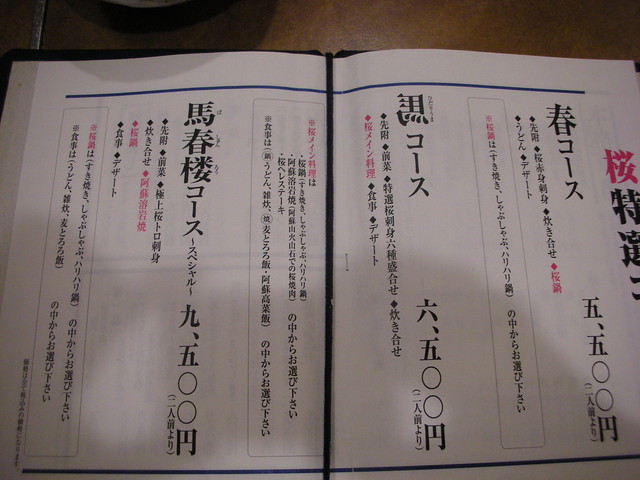 桜特選コ
春コース 五、五〇〇円(二人前より)
◆先附 ◆桜赤身刺身 ◆炊き合せ ◆桜鍋
◆うどん ◆デザート
※桜鍋は(すき焼き、しゃぶしゃぶ、ハリハリ鍋) の中からお選び下さい
コース 六、五〇〇円(二人前より)
◆先附 ◆前菜 ◆特選桜刺身六種盛合せ ◆炊き合せ
◆桜メイン料理 ◆食事 ◆デザート
※桜メイン料理は
・桜鍋(すき焼き、しゃぶしゃぶ、ハリハリ鍋)
・阿蘇溶岩焼(阿蘇山火山石での桜焼肉) の中からお選び下さい
・桜ヘレステーキ
※食事は(鍋)うどん、雑炊、(焼)麦とろろ飯・阿蘇高菜飯) の中からお選び下さい
馬春楼コース ～スペシャル～ 九、五〇〇円(二人前より)
ば しゅん ろう
◆先附 ◆前菜 ◆極上桜トロ刺身
◆炊き合せ ◆阿蘇溶岩焼
◆桜鍋
◆食事 ◆デザート
※桜鍋は(すき焼き、しゃぶしゃぶ、ハリハリ鍋) の中からお選び下さい
※食事は(うどん、雑炊、麦とろろ飯) の中からお選び下さい
価格は全て税込みの価格になります